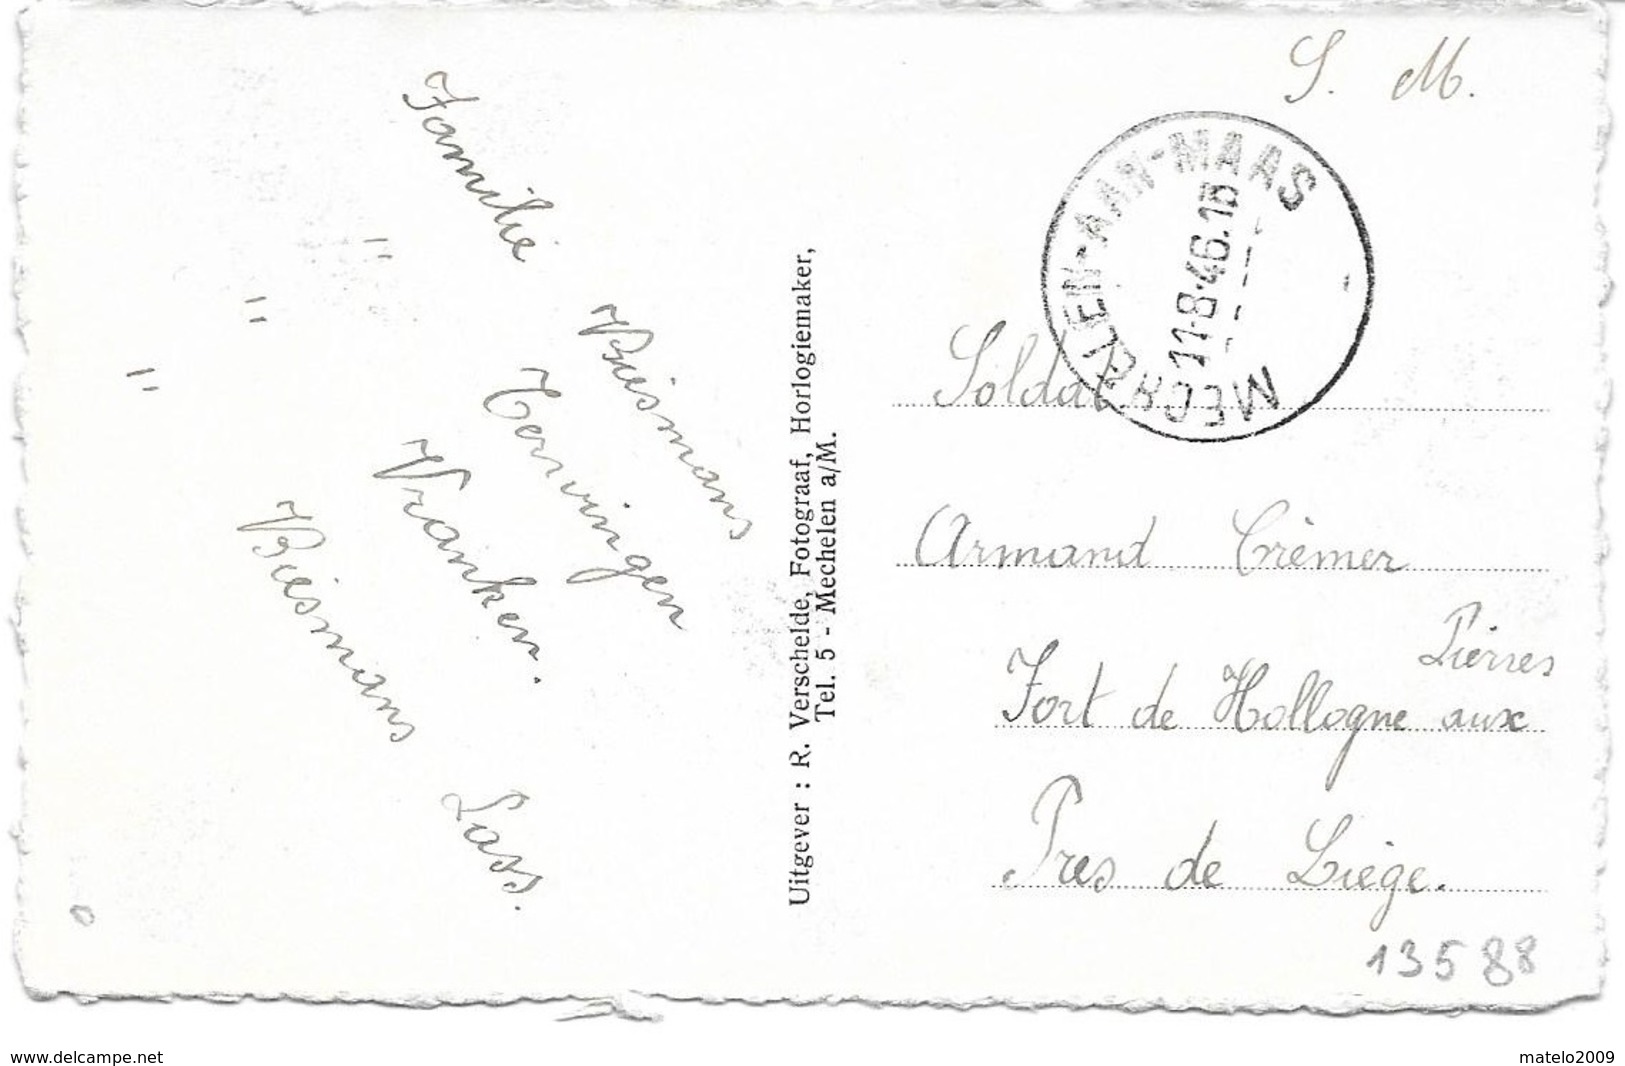 S. M.
MECHELEN-AAN-MAAS
11-8-46.18
Familie Biesmans
" Tervingen
" Vranken.
" Biesmans Lass.
Uitgever : R. Verschelde, Fotograaf, Horlogiemaker,
Tel. 5 - Mechelen a/M.
Soldat
Armand Crèmer
Fort de Hollogne aux Pierres
Pres de Liège.
13588
www.delcampe.net
matelo2009